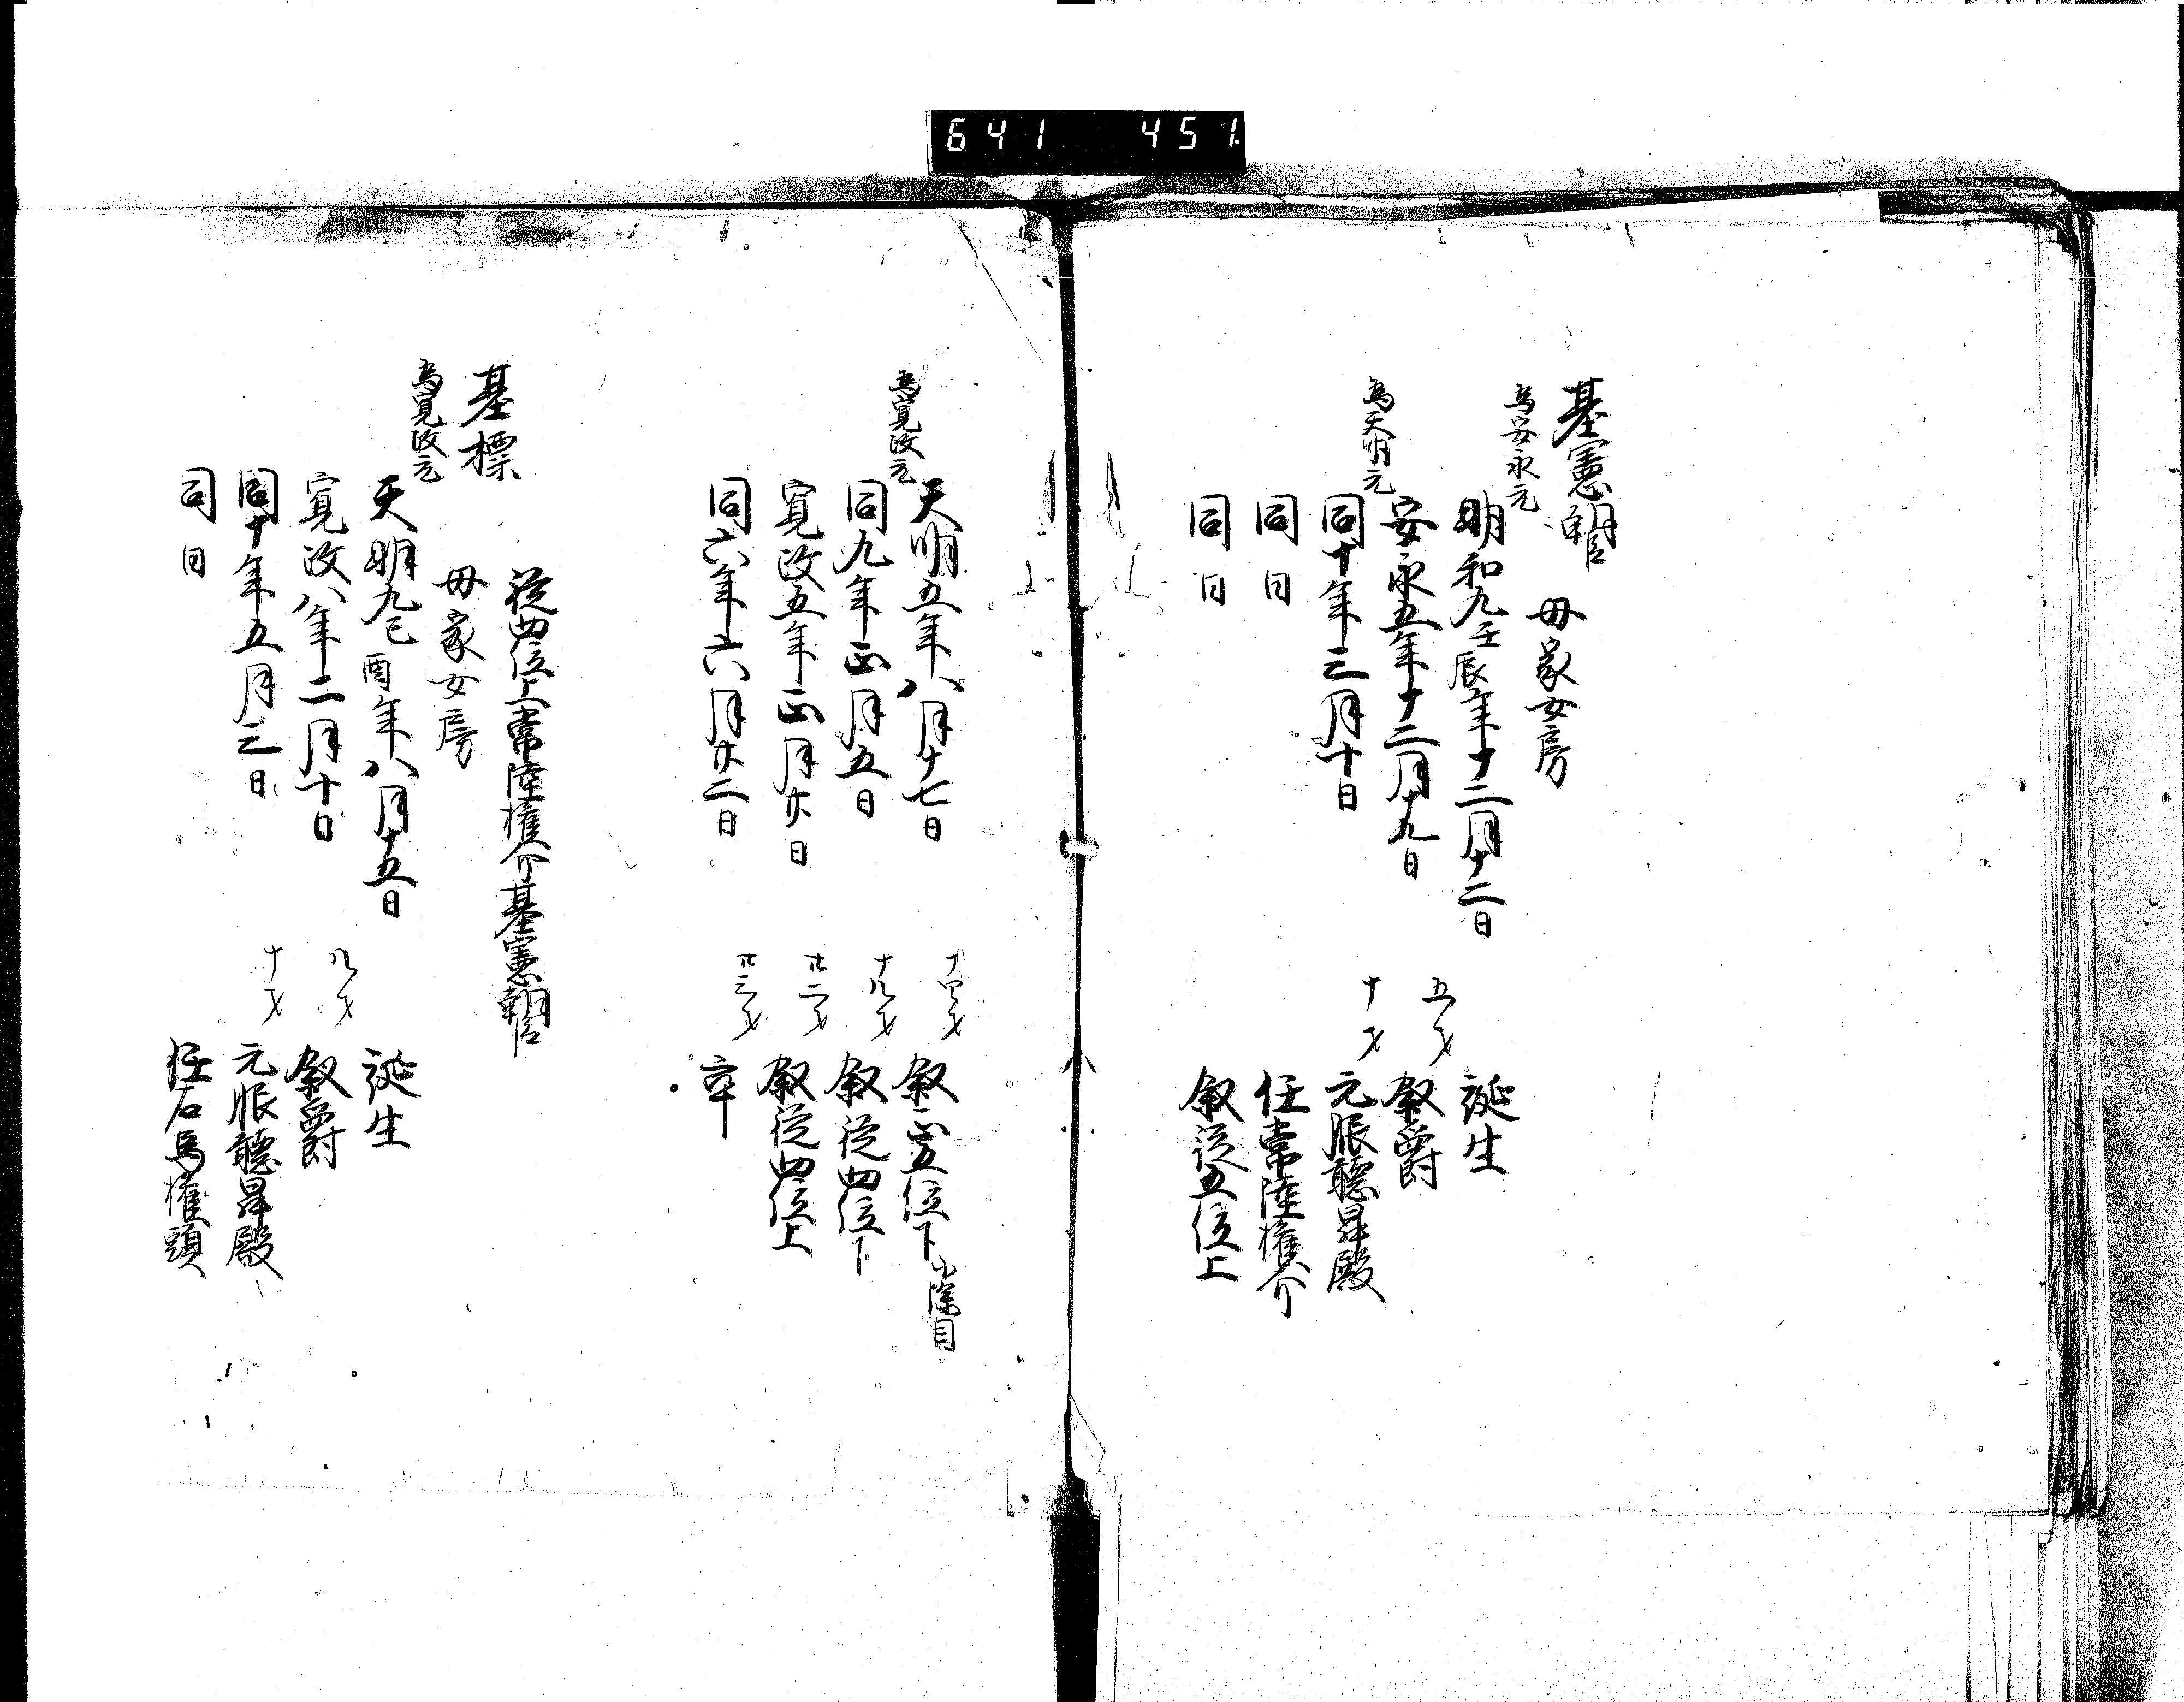 641 451
基憲朝臣
母家女房
為安永元
明和九壬辰年十二月十二日 誕生
安永五年十二月十九日 五才 叙爵
為天明元
同十年三月十日 十才 元服聴昇殿
同日 任常陸権介
同日 叙従五位上
天明五年八月十七日 十四才 叙正五位下 小除目
為寛政元
同九年正月五日 十八才 叙従四位下
寛政五年正月廿六日 廿二才 叙従四位上
同六年六月廿二日 廿三才 卒
従四位上常陸権介基憲朝臣
基標
母家女房
為寛政元
天明九己酉年八月十五日 誕生
寛政八年二月十日 八才 叙爵
同十年五月三日 十才 元服聴昇殿
同日 任右馬権頭